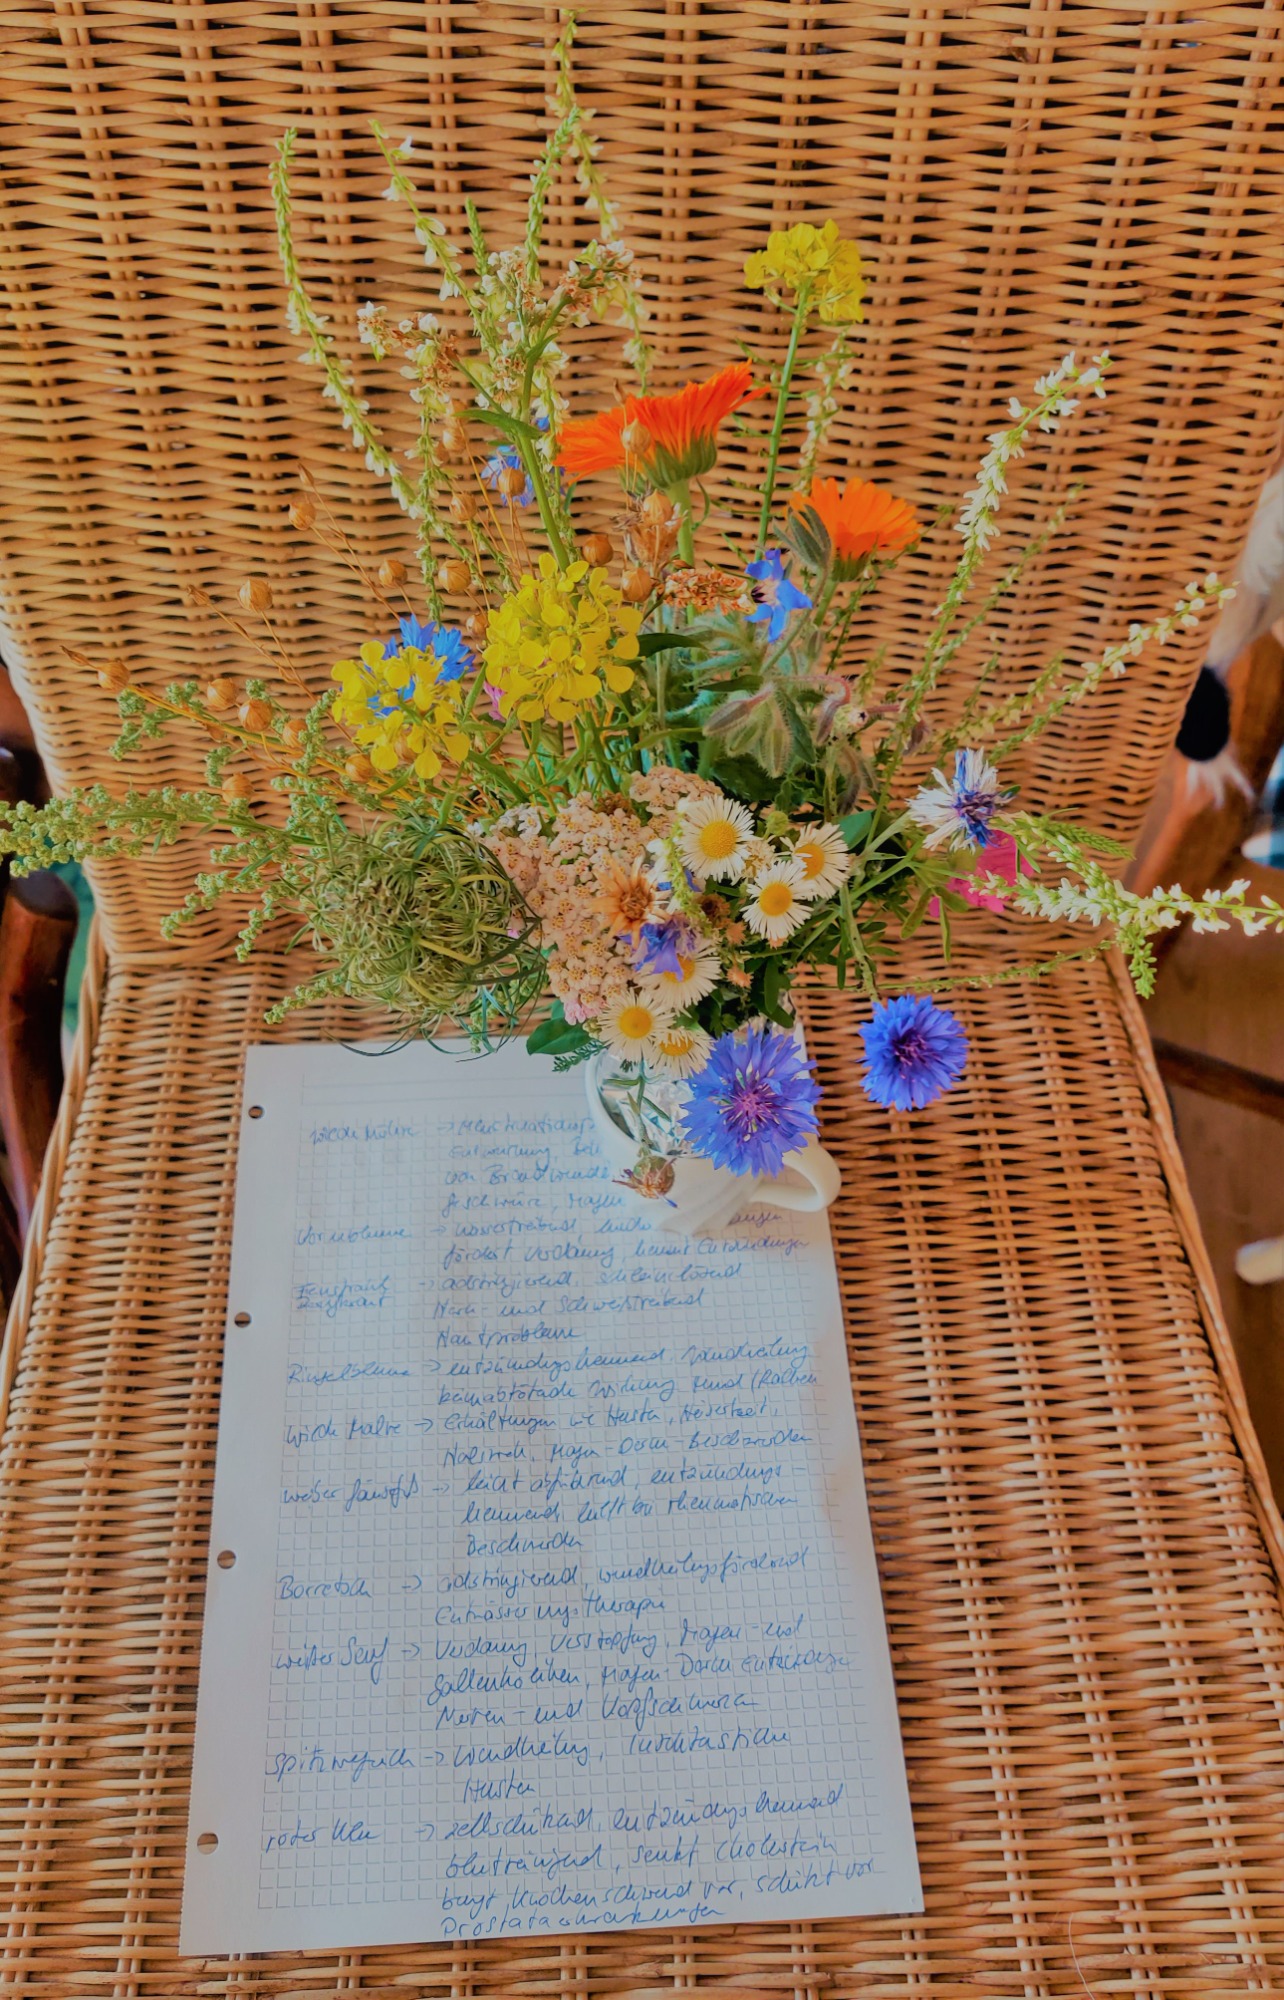 wilde Möhre → Menstruations
Entwurmung, Bei
von Brandwunden
geschwüre, Magen
Kornblume → wassertreibend, lindern
fördert Verdauung, hemmt Entzündungen
Feinstrahl → adstringierend, schleimlösend
Berufkraut Harn- und Schweißtreibend
Hautprobleme
Ringelblume → entzündungshemmend, Wundheilung
keimabtötende Wirkung Mund/Rachen
Wilde Malve → Erkältungen wie Husten, Heiserkeit,
Halsweh, Magen-Darm-Beschwerden
weißer Gänsefuß → leicht abführend, entzündungs-
hemmend, hilft bei rheumatischen
Beschwerden
Borretsch → adstringierend, wundheilungsfördernd
Entwässerungstherapie
weißer Senf → Verdauung, Verstopfung, Magen- und
Gallenkoliken, Magen-Darm Entzündungen
Nerven- und Kopfschmerzen
Spitzwegerich → Wundheilung, Insektenstiche
Husten
roter Klee → zellschützend, entzündungshemmend
blutreinigend, senkt Cholesterin
beugt Knochenschwund vor, schützt vor
Prostataerkrankungen